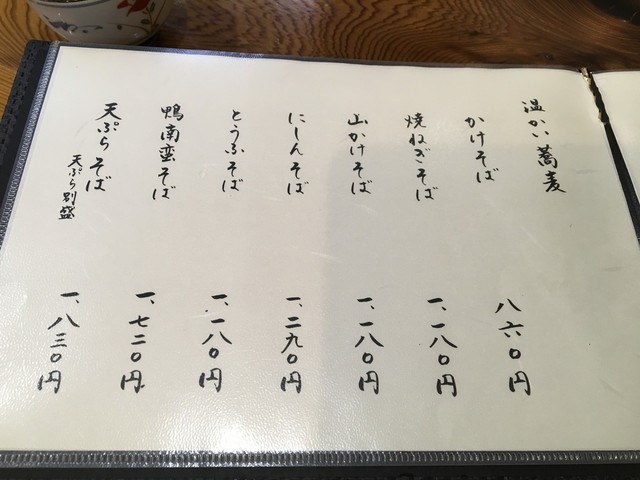 温かい蕎麦
かけそば
八六〇円
焼ねぎそば
一、一八〇円
山かけそば
一、一八〇円
にしんそば
一、二九〇円
とうふそば
一、一八〇円
鴨南蛮そば
一、七二〇円
天ぷらそば
天ぷら別盛
一、八三〇円